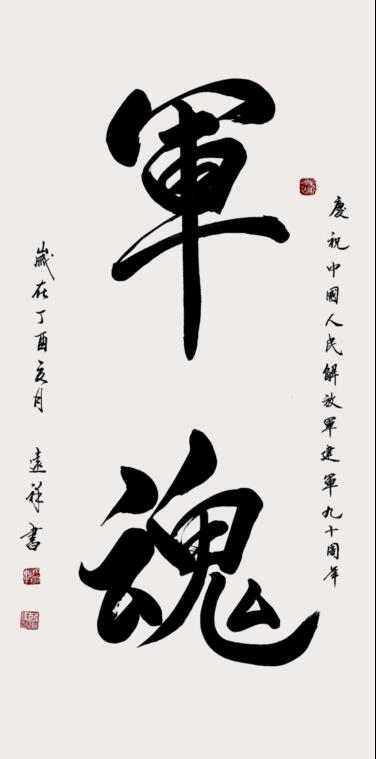 慶祝中國人民解放軍建軍九十周年
軍魂
歲在丁酉亥月 遠祥書